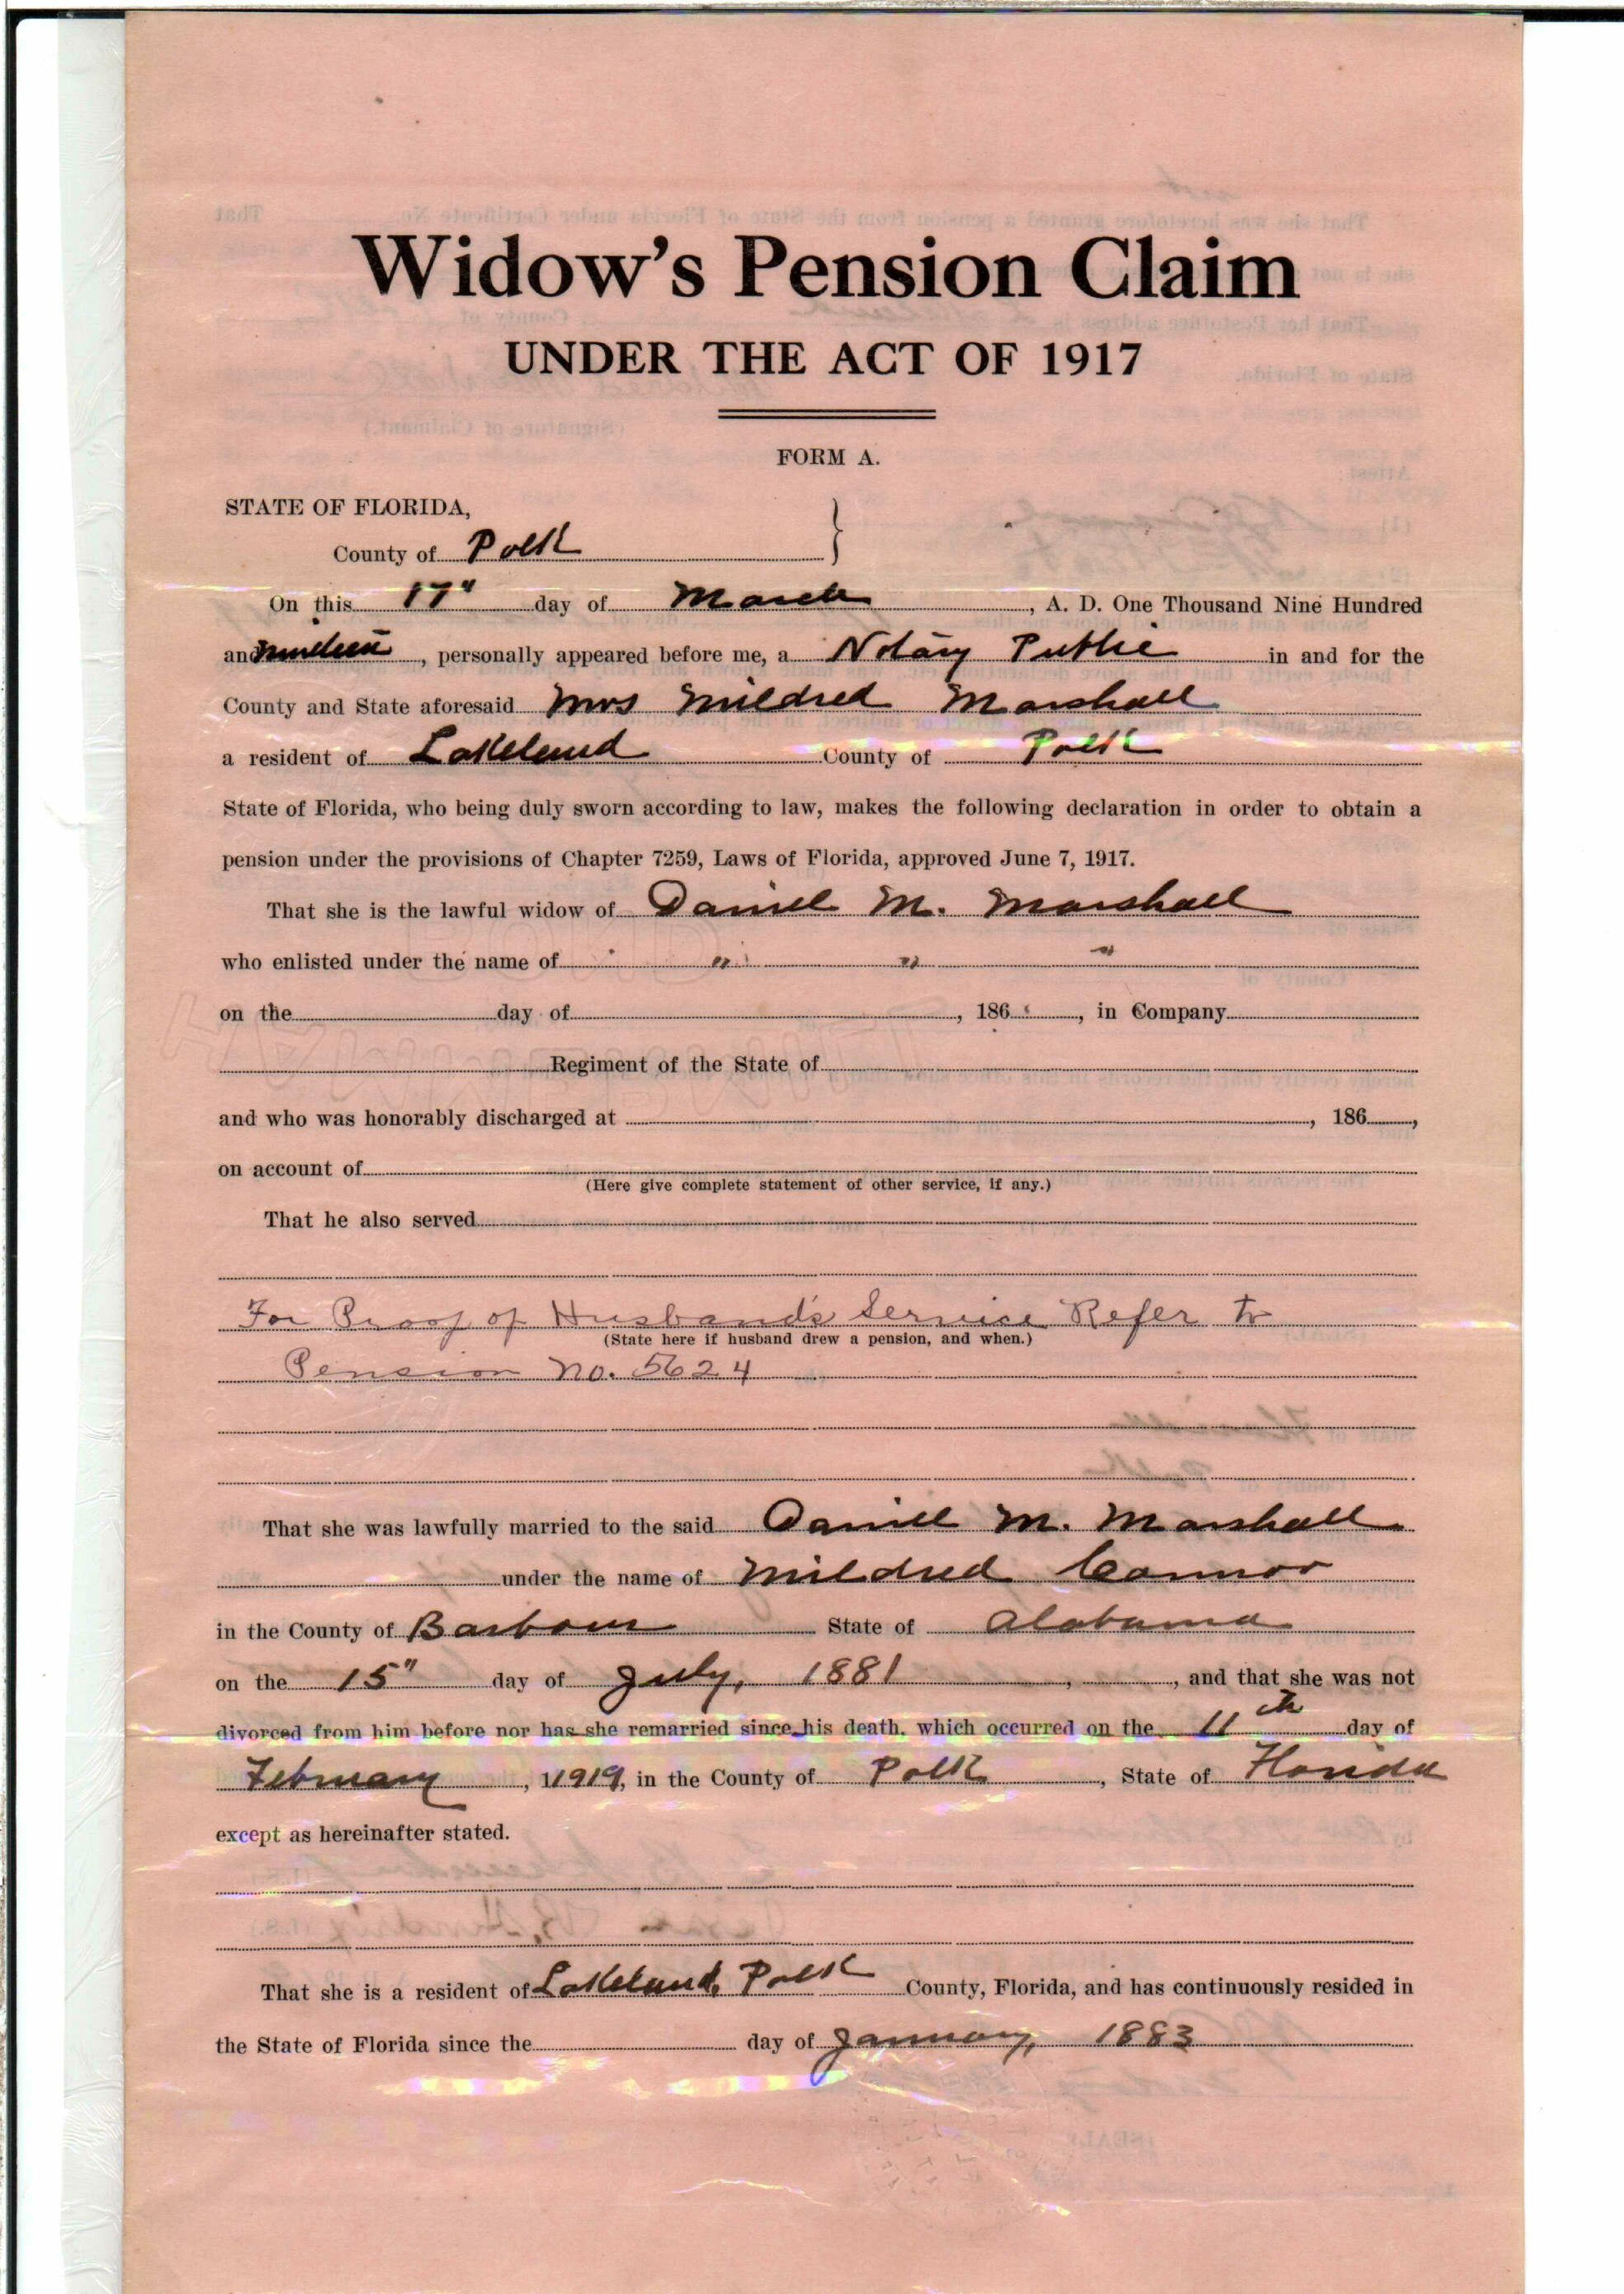 Widow's Pension Claim
UNDER THE ACT OF 1917
FORM A.
STATE OF FLORIDA,
County of Polk
On this 17" day of March, A. D. One Thousand Nine Hundred
and nineteen, personally appeared before me, a Notary Public in and for the
County and State aforesaid Mrs Mildred Marshall
a resident of Lakeland County of Polk
State of Florida, who being duly sworn according to law, makes the following declaration in order to obtain a
pension under the provisions of Chapter 7259, Laws of Florida, approved June 7, 1917.
That she is the lawful widow of Daniel M. Marshall
who enlisted under the name of " " "
on the day of , 186 , in Company
Regiment of the State of
and who was honorably discharged at , 186 ,
on account of
(Here give complete statement of other service, if any.)
That he also served
For Proof of Husband's Service Refer to
(State here if husband drew a pension, and when.)
Pension No. 5624
That she was lawfully married to the said Daniel M. Marshall
under the name of Mildred Connor
in the County of Barbour State of Alabama
on the 15" day of July, 1881 , , and that she was not
divorced from him before nor has she remarried since his death, which occurred on the 11th day of
February, 11919, in the County of Polk, State of Florida
except as hereinafter stated.
That she is a resident of Lakeland, Polk County, Florida, and has continuously resided in
the State of Florida since the day of January, 1883